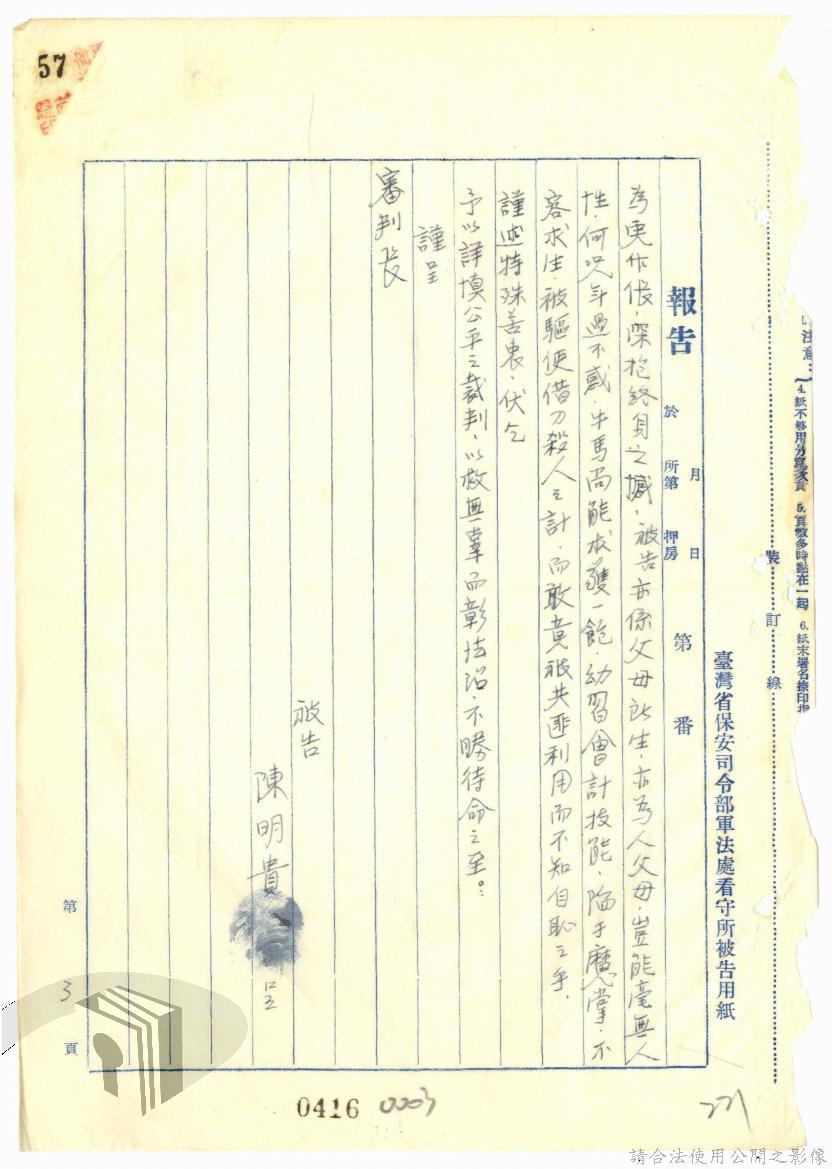 57
注意：4.紙不够用另寫次頁 5.頁數多時黏在一起 6.紙末署名捺印指
裝訂線
臺灣省保安司令部軍法處看守所被告用紙
報告 於 月 日 所第 押房 第 番
為更作倀，深抱終身之撼，被告亦係父母所生，亦為人父母，豈能毫無人
性，何况年過不惑，牛馬尚能求獲一飽，幼習會計技能，陷于魔掌，不
容求生，被驅使借刀殺人之計，而敢竟被共匪利用而不知自恥之乎，
謹述特殊苦衷，伏乞
予以詳慎公平之裁判，以救無辜而彰法治，不勝待命之至。
謹呈
審判長
被告
陳明貴 呈
第 3 頁
0416 0003
221
請合法使用公開之影像